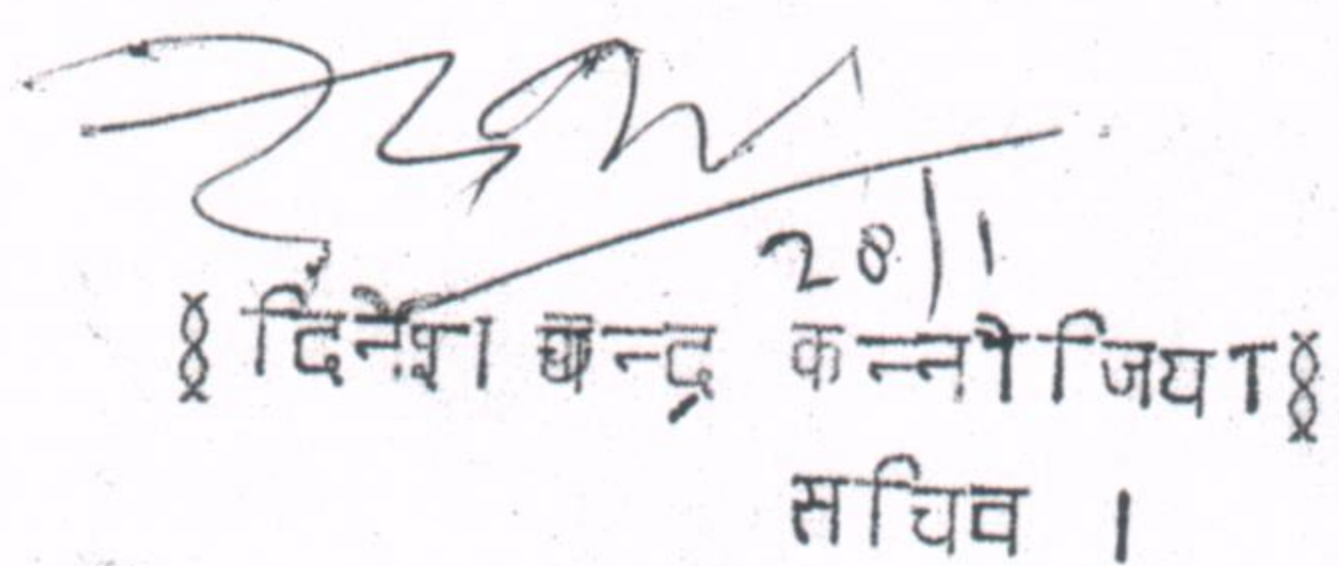 28/1
§ दिनेश चन्द्र कन्नौजिया §
सचिव ।